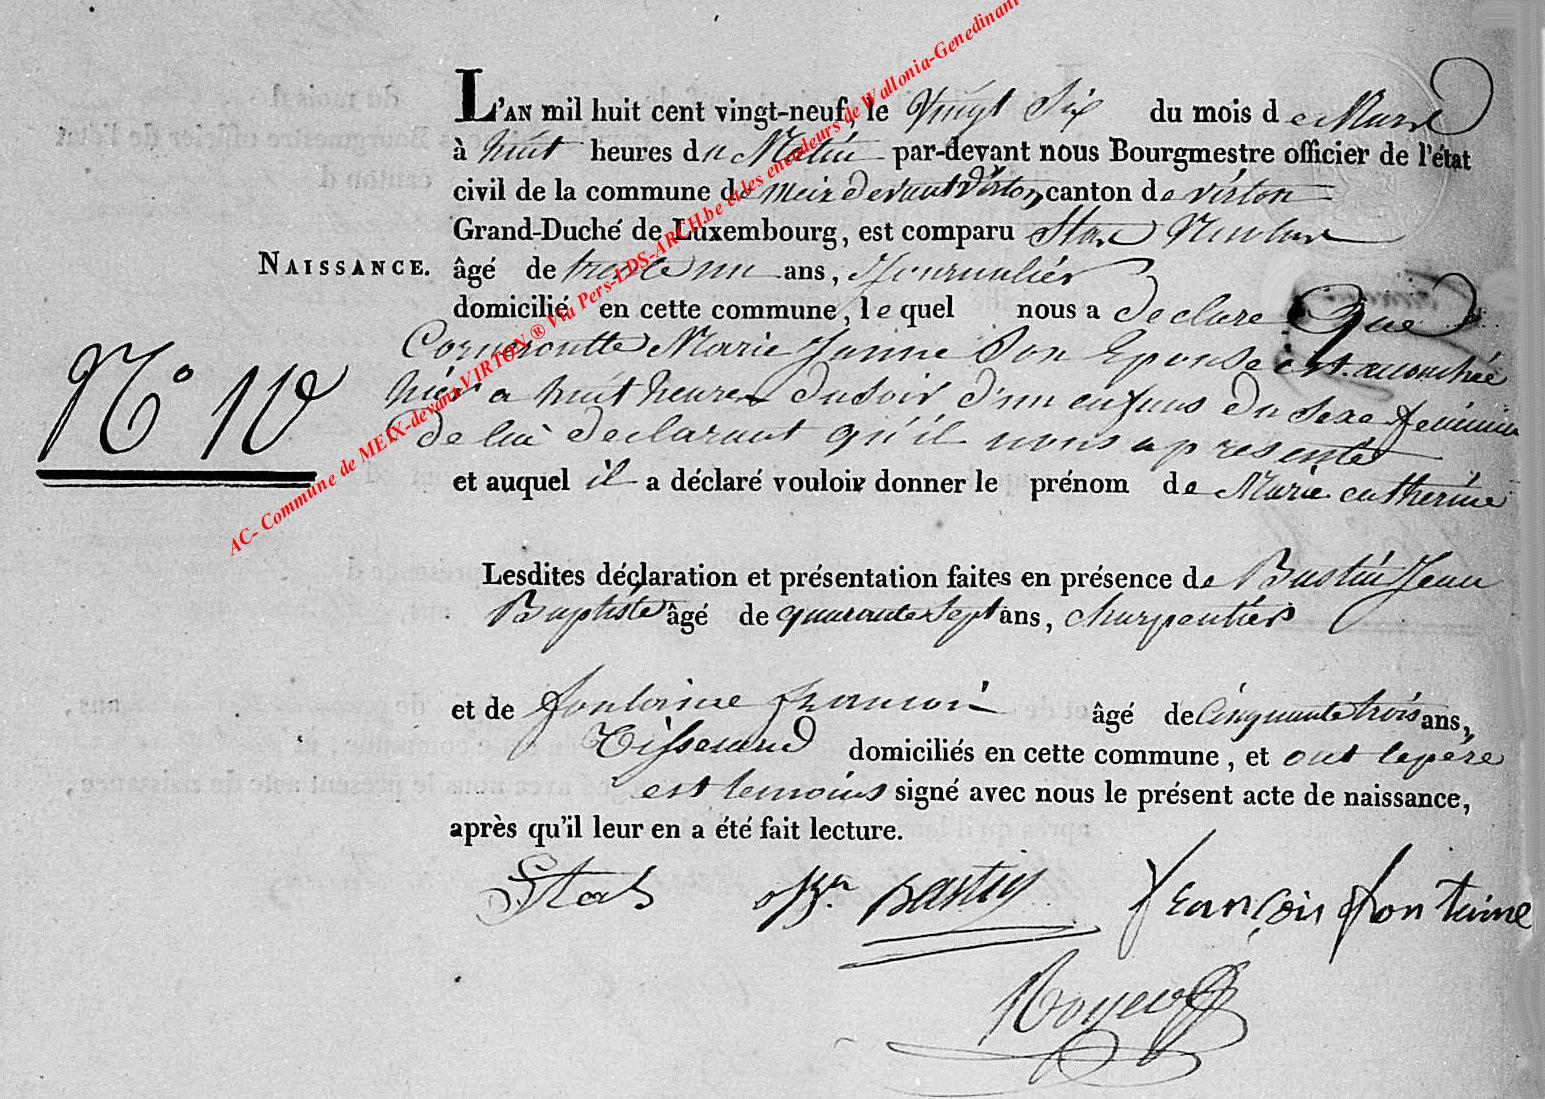 L'AN mil huit cent vingt-neuf, le vingt Six du mois de Mars
à huit heures du Matin par-devant nous Bourgmestre officier de l'état
civil de la commune de meix devant virton, canton de virton
Grand-Duché de Luxembourg, est comparu
NAISSANCE. âgé de trente un ans, Journaliér
domicilié en cette commune, lequel nous a declare Que
Marie Jeanne Son Epouse est accouchée
hiér a huit heures du soir d'un enfans du Sexe feminin
N° 10
de lui declarant qu'il nous a presenté
et auquel il a déclaré vouloir donner le prénom de Marie catherine
Lesdites déclaration et présentation faites en présence de Bastin Jean
Baptiste âgé de quarante Sept ans, charpentiér
et de fontaine francoi âgé de Cinquante trois ans,
Tisserand domiciliés en cette commune, et ont le pére
est temoins signé avec nous le présent acte de naissance,
après qu'il leur en a été fait lecture.
Bastin françois fontaine
AC- Commune de MEIX-devant VIRTON ® Via Pers-LDS-ARCH.be et les encodeurs de Wallonia-Genedinant